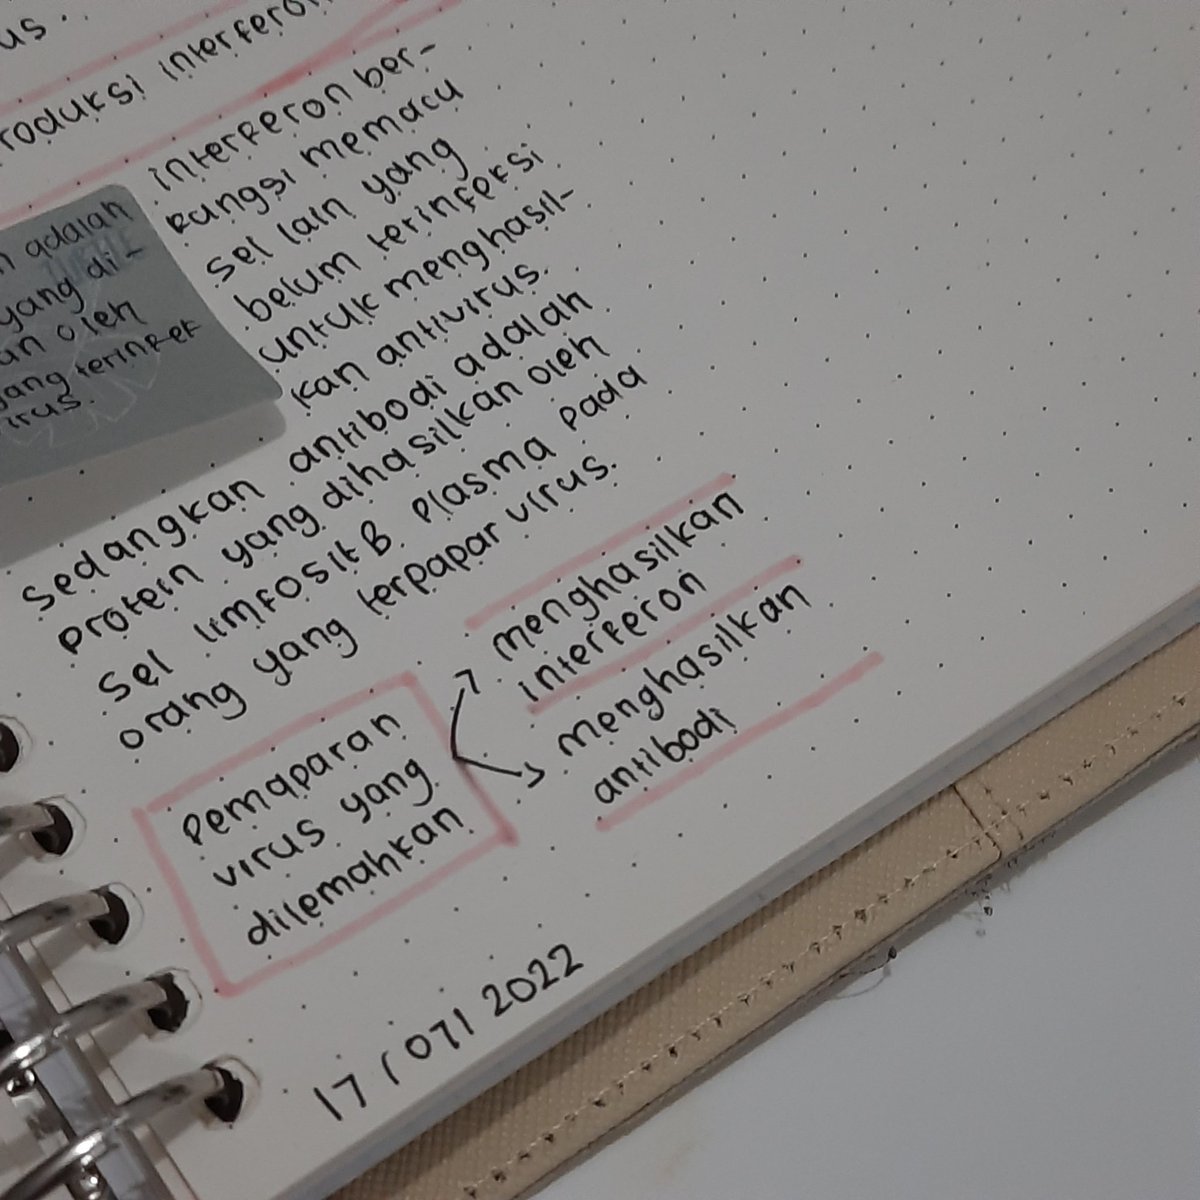 us.
roduksi interferon
interferon ber-
fungsi memacu
sel lain yang
belum terinfeksi
untuk menghasil-
kan antivirus.
n adalah
yang di-
an oleh
yang terinfek
irus.
Sedangkan antibodi adalah
protein yang dihasilkan oleh
sel limfosit B plasma pada
orang yang terpapar virus.
Pemaparan
virus yang
dilemahkan
→ menghasilkan
interferon
→ menghasilkan
antibodi
17/07/2022